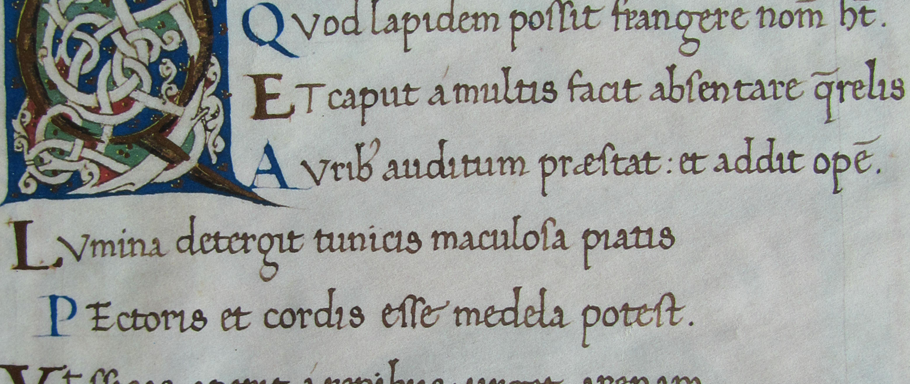 Qvod lapidem poſſit frangere nom̄ ht̄.
ET caput á multis facit abſentare q̄relis
Avrib᷒ auditum præſtat: et addit opē.
Lvmina detergit tunicis maculoſa piatis
PEctoris et cordis eſſe medela poteſt.